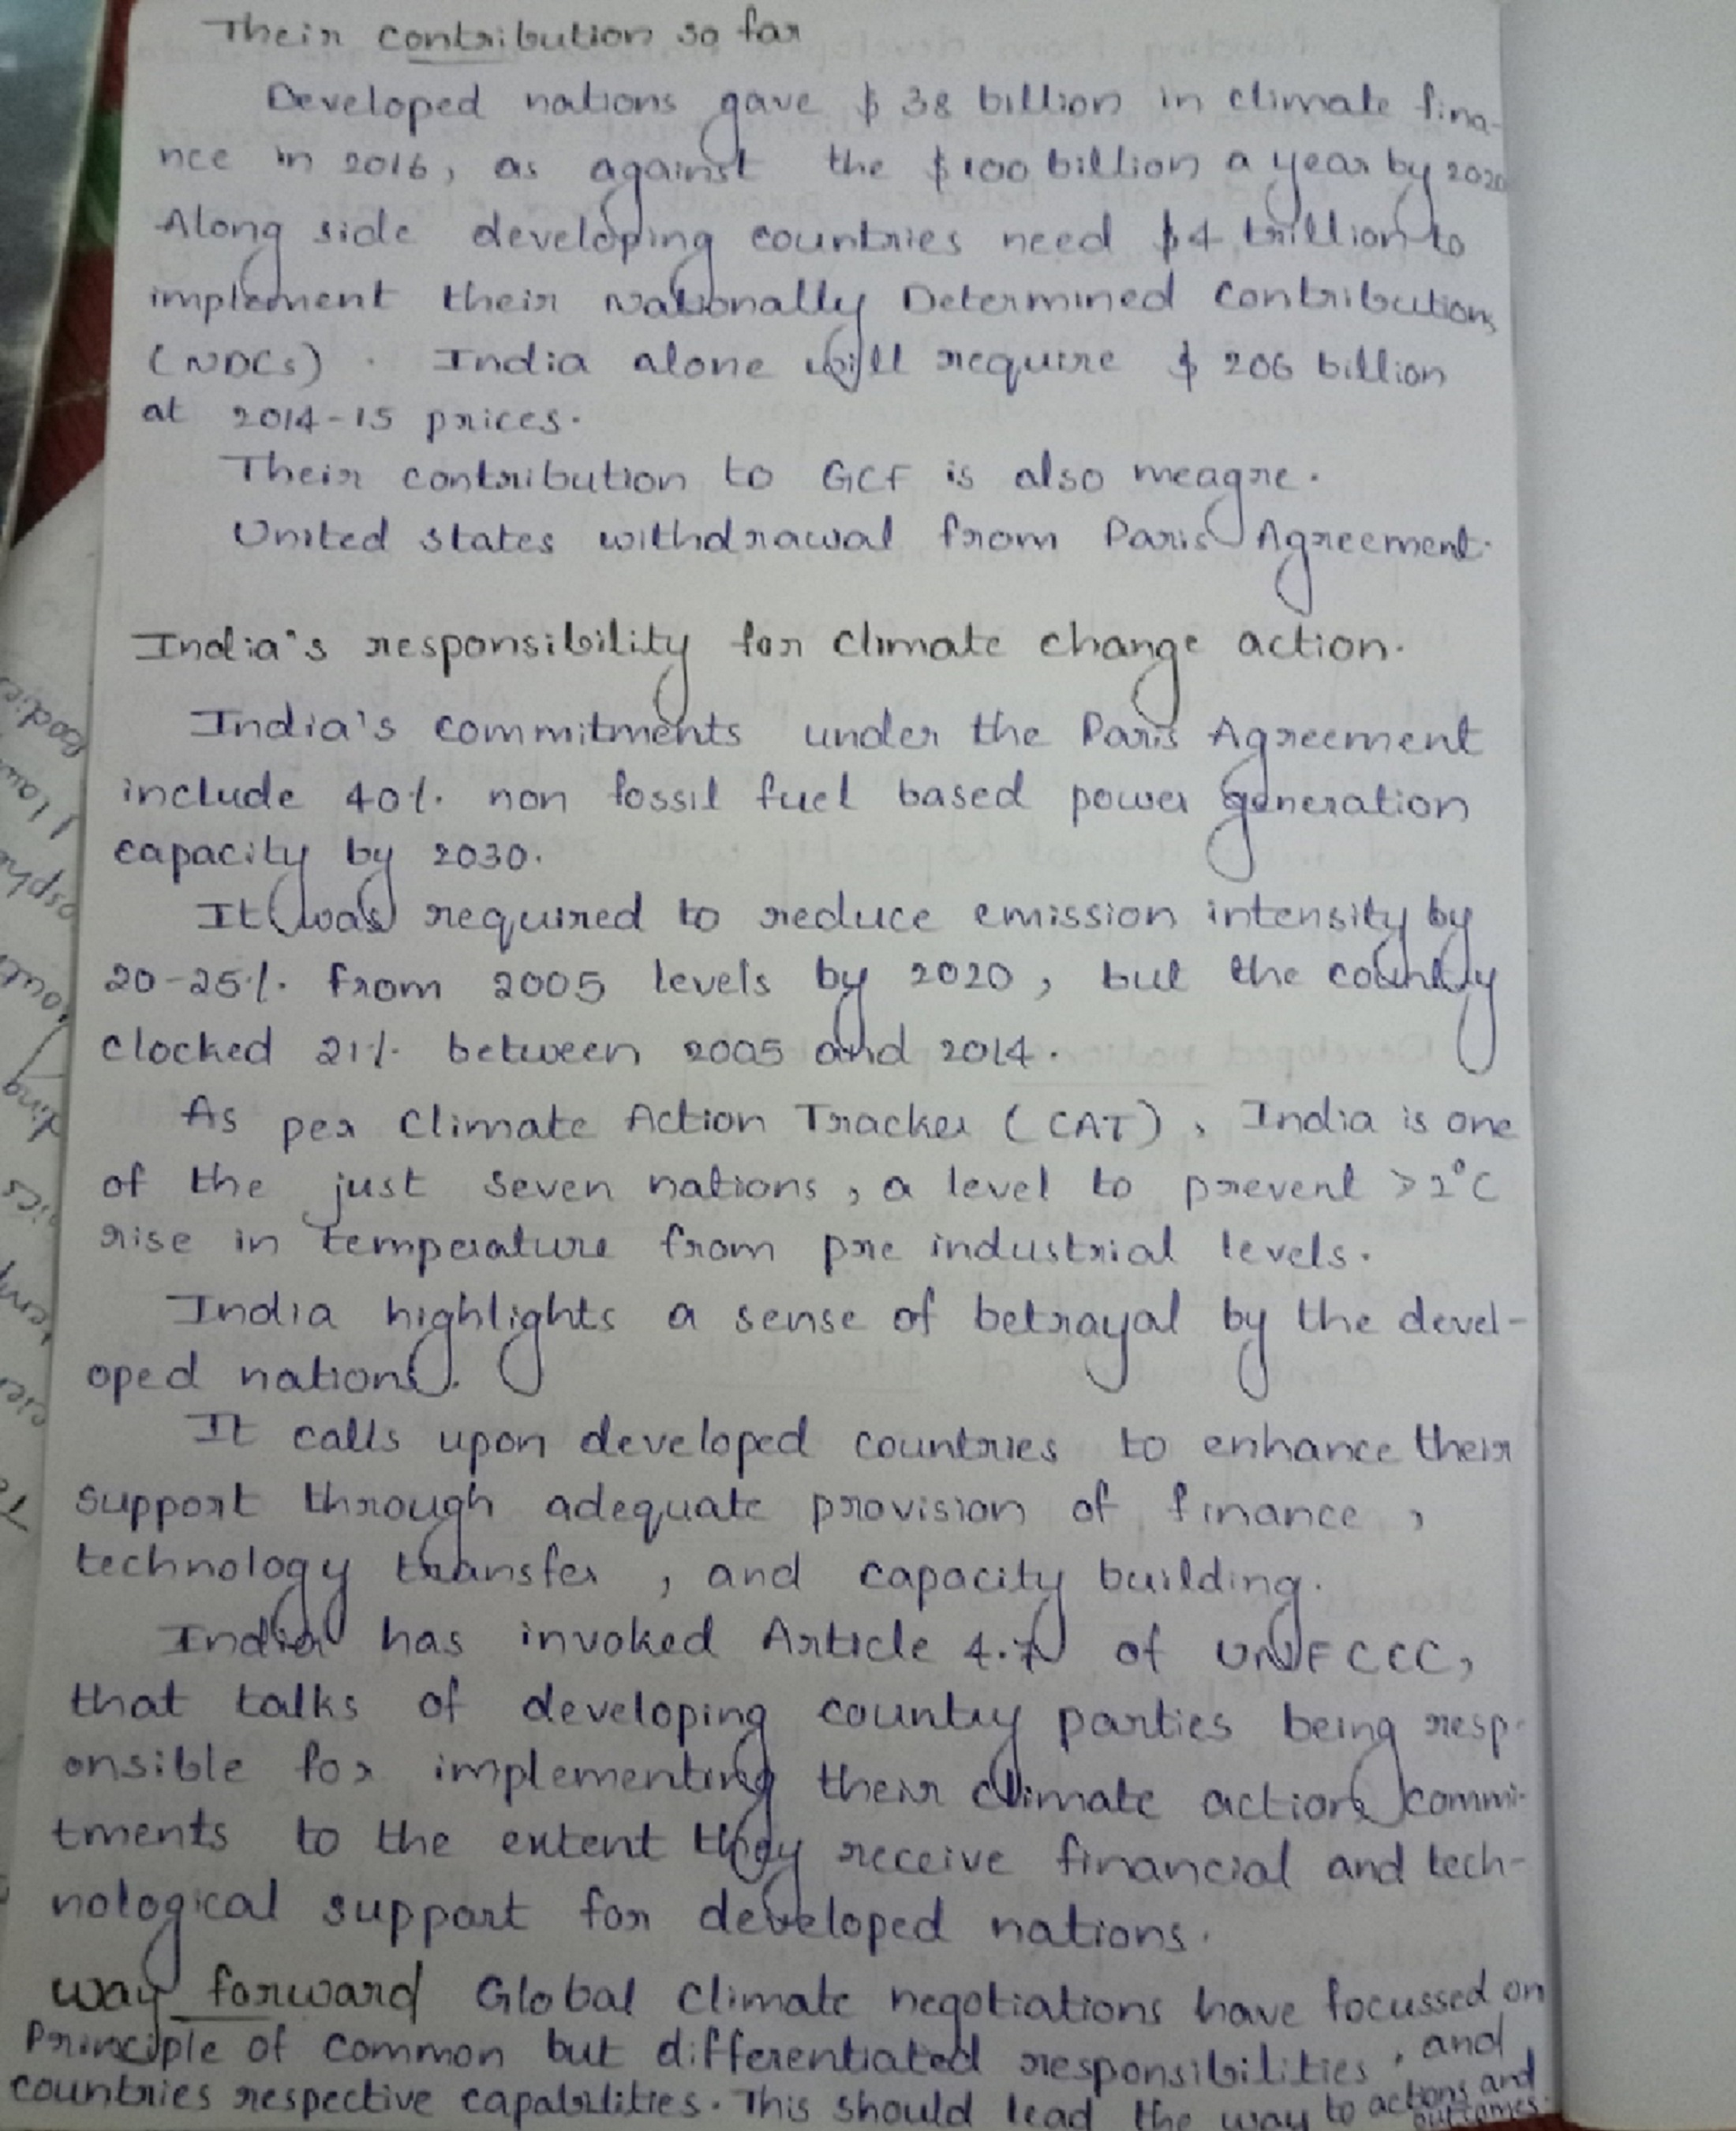 Their contribution so far
Developed nations gave $ 38 billion in climate fina-
nce in 2016, as against the $100 billion a year by 2020
Along side developing countries need $4 trillion to
implement their Nationally Determined Contributions
(NDCs). India alone will require $ 206 billion
at 2014-15 prices.
Their contribution to GCF is also meagre.
United states withdrawal from Paris Agreement.
India's responsibility for climate change action.
India's commitments under the Paris Agreement
include 40% non fossil fuel based power generation
capacity by 2030.
It was required to reduce emission intensity by
20-25% from 2005 levels by 2020, but the country
clocked 21% between 2005 and 2014.
As per Climate Action Tracker (CAT), India is one
of the just seven nations, a level to prevent >2°C
rise in temperature from pre industrial levels.
India highlights a sense of betrayal by the devel-
oped nations.
It calls upon developed countries to enhance their
support through adequate provision of finance,
technology transfer, and capacity building.
India has invoked Article 4.7 of UNFCCC,
that talks of developing country parties being resp-
onsible for implementing their climate actions commi-
tments to the extent they receive financial and tech-
nological support for developed nations.
way forward Global Climate negotiations have focussed on
Principle of common but differentiated responsibilities, and
countries respective capabilities. This should lead the way to actions and
outcomes.
bodies